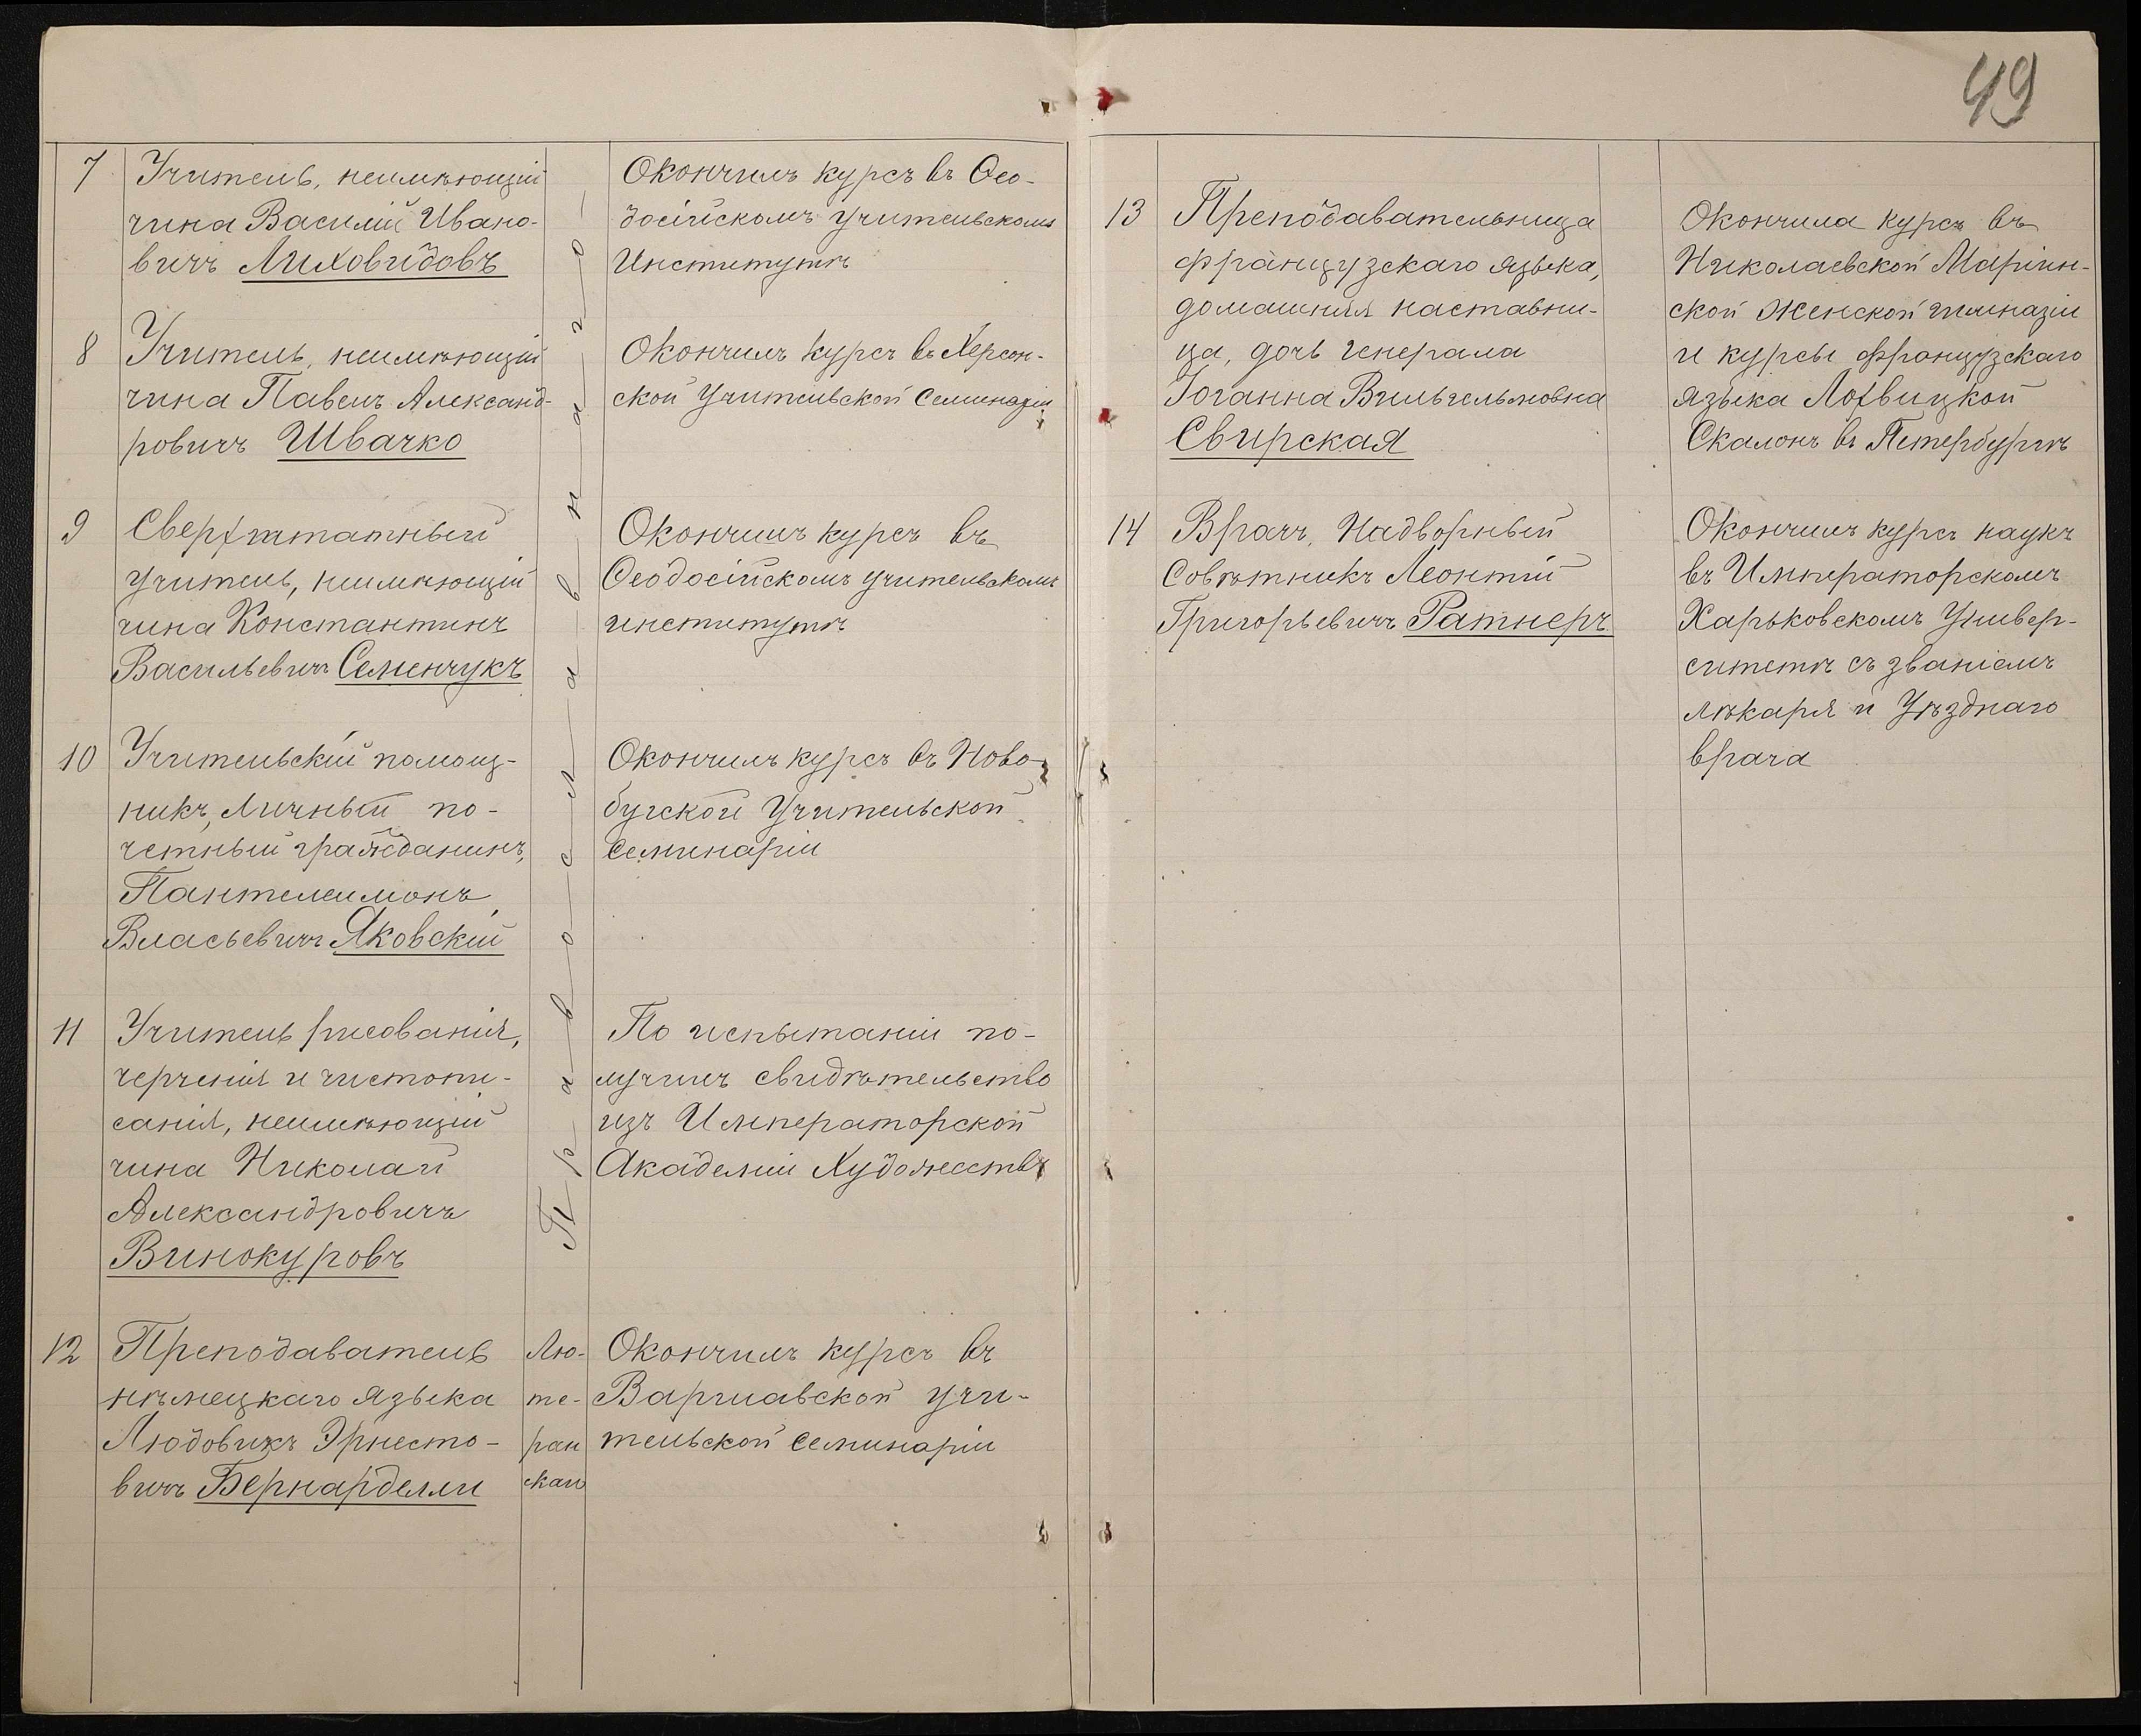 49
7
Учитель, неимѣющій
чина Василій Ивано-
вичъ Лиховидовъ
Окончилъ курсъ въ Ѳео-
досійскомъ учительскомъ
Институтѣ
8
Учитель, неимѣющій
чина Павелъ Александ-
ровичъ Швачко
Окончилъ курсъ въ Херсон-
ской Учительской Семинаріи
9
Сверхштатный
учитель, неимѣющій
чина Константинъ
Васильевичъ Семенчукъ
Окончилъ курсъ въ
Ѳеодосійскомъ учительскомъ
институтѣ
10
Учительскій помощ-
никъ, Личный по-
четный гражданинъ,
Пантелеимонъ
Власьевичъ Яковскій
Окончилъ курсъ въ Ново-
бугской Учительской
Семинаріи
11
Учитель рисованія,
черченія и чистопи-
санія, неимѣющій
чина Николай
Александровичъ
Винокуровъ
По испытаніи по-
лучилъ свидѣтельство
изъ Императорской
Академіи Художествъ
П-р-а-в-о-с-л-а-в-н-а-г-о-
12
Преподаватель
нѣмецкаго языка
Людовикъ Эрнесто-
вичъ Бернарделли
Лю-
те-
ран
скаго
Окончилъ курсъ въ
Варшавской учи-
тельской семинаріи
13
Преподавательница
французскаго языка,
домашняя наставни-
ца, дочь генерала
Іоганна Вильгельмовна
Свирская
Окончила курсъ въ
Николаевской Маріин-
ской Женской гимназіи
и курсы французскаго
языка Лохвицкой
Скалонъ въ Петербургѣ
14
Врачъ, Надворный
Совѣтникъ Леонтій
Григорьевичъ Ратнеръ
Окончилъ курсъ наукъ
въ Императорскомъ
Харьковскомъ Универ-
ситетѣ съ званіемъ
лѣкаря и Уѣзднаго
врача